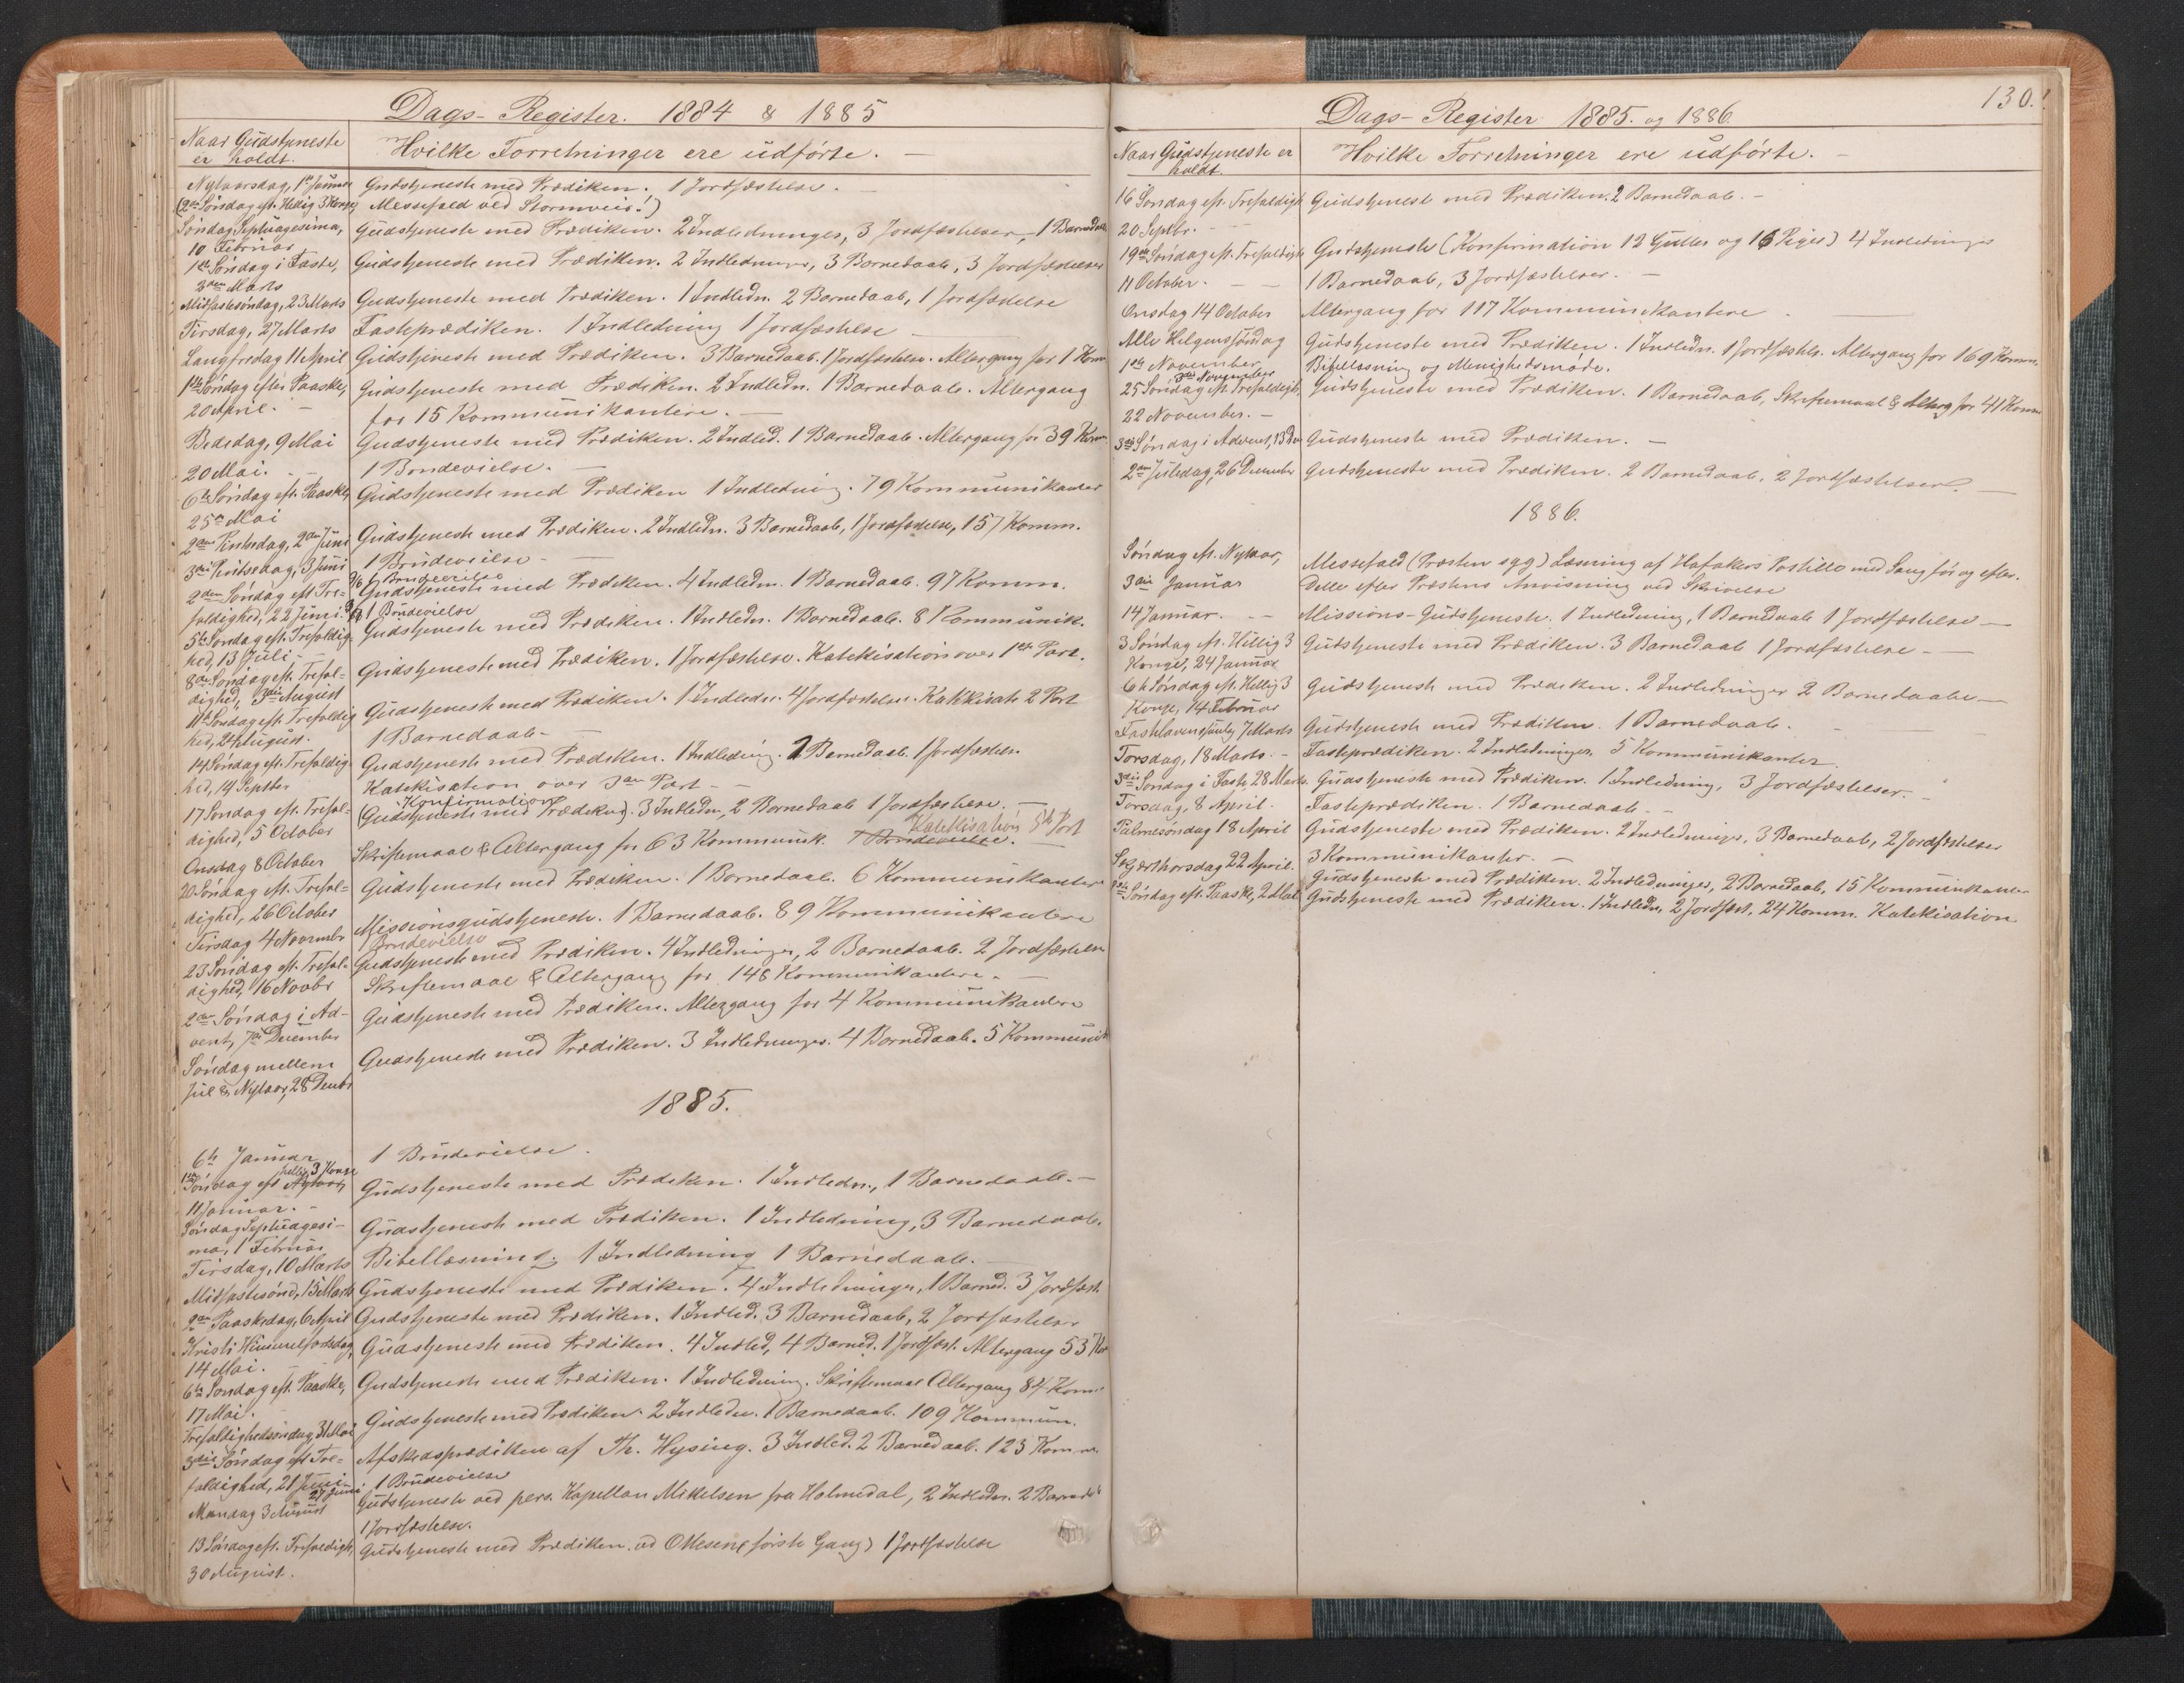 Dags-Register. 1884 & 1885
Naar Gudstjeneste
er holdt.
Hvilke Forretninger ere udførte. —
Nytaarsdag, 1ste Januar Gudstjeneste med Prædiken. 1 Jordfæstelse. —
(2den Søndag eft. Hellig 3 Konger, Messefald ved Stormveir!)
Søndag Septuagesima, Gudstjeneste med Prædiken. 2 Indledninger, 3 Jordfæstelser, 1 Barnedaab
10 Februar
1ste Søndag i Faste, Gudstjeneste med Prædiken. 2 Indledninger, 3 Barnedaab, 3 Jordfæstelser
2den Marts
Midfastesøndag, 23 Marts Gudstjeneste med Prædiken. 1 Indledn. 2 Barnedaab, 1 Jordfæstelse
Tirsdag, 27 Marts Fasteprædiken. 1 Indledning 1 Jordfæstelse —
Langfredag 11 April Gudstjeneste med Prædiken. 3 Barnedaab. 1 Jordfæstelse. Altergang for 1 Kom
1ste Søndag efter Paaske, Gudstjeneste med Prædiken. 2 Indledn. 1 Barnedaab. Altergang
20 April. — for 15 Kommunikantere. —
Bededag, 9 Mai Gudstjeneste med Prædiken. 2 Indled. 1 Barnedaab. Altergang for 39 Kom.
20 Mai. 1 Brudevielse. —
6te Søndag eft. Paaske, Gudstjeneste med Prædiken 1 Indledning. 79 Kommunikanter
25de Mai
2den Pintsedag, 2den Juni Gudstjeneste med Prædiken. 2 Indledn. 3 Barnedaab, 1 Jordfæstelse, 157 Komm.
3die Pintsedag, 3 Juni 1 Brudevielse —
2/6 1 Brudevielse
2den Søndag eft Tre- Gudstjeneste med Prædiken. 4 Indledn. 1 Barnedaab. 97 Komm.
foldighed, 22 Juni. 1 Brudevielse
5te Søndag eft. Trefoldig- Gudstjeneste med Prædiken. 1 Indledn. 1 Barnedaab. 8 Kommunik.
hed, 13 Juli
8de Søndag eft. Trefol- Gudstjeneste med Prædiken. 1 Jordfæstelse. Katekisation over 1ste Part.
dighed, 3die August
11te Søndag eft. Trefoldig Gudstjeneste med Prædiken. 1 Indledn. 4 Jordfæstelser. Katekisats 2 Part
hed, 24 August. 1 Barnedaab —
14 Søndag eft. Trefoldig- Gudstjeneste med Prædiken. 1 Indledning. 2 Barnedaab. 1 Jordfæstelse
hed, 14 Septbr Katekisation over 3die Part —
Konfirmation
17 Søndag eft. Trefol- (Gudstjeneste med Prædiken). 3 Indledn, 2 Barnedaab 1 Jordfæstelse. —
dighed, 5 October Katekisation 5te Part
Onsdag 8 October Skriftemaal & Altergang for 63 Kommunik. 1 Brudevielse. —
20 Søndag eft. Trefol- Gudstjeneste med Prædiken. 1 Barnedaab. 6 Kommunikanter
dighed, 26 October
Tirsdag 4 Novembr Missionsgudstjeneste. 1 Barnedaab. 89 Kommunikantere
1 Brudevielse
23 Søndag eft. Trefol- Gudstjeneste med Prædiken. 4 Indledninger, 2 Barnedaab. 2 Jordfæstelse
dighed, 16 Novbr Skriftemaal & Altergang for 148 Kommunikantere. —
2den Søndag i Ad- Gudstjeneste med Prædiken. Altergang for 4 Kommunikantere
vent, 7de December
Søndag mellem Gudstjeneste med Prædiken. 3 Indledninger. 4 Barnedaab. 5 Kommunik
Jul & Nytaar, 28 Decbr
1885.
6te Januar 1 Brudevielse.
hellig 3 Konge
1ste Søndag eft Nytaar, Gudstjeneste med Prædiken. 1 Indledn., 1 Barnedaab. —
11 Januar. —
Søndag Septuagesi- Gudstjeneste med Prædiken. 1 Indledning, 3 Barnedaab.
ma, 1 Februar
Tirsdag, 10 Marts Bibellæsning. 1 Indledning 1 Barnedaab. —
Midfastesønd. 15 Marts Gudstjeneste med Prædiken. 4 Indledninger, 1 Barned. 3 Jordfæst.
2den Paaskedag, 6 April Gudstjeneste med Prædiken. 1 Indled. 3 Barnedaab, 2 Jordfæstelser
Kristi Himmelfartsdag, Gudstjeneste med Prædiken. 4 Indled, 4 Barned. 1 Jordfæst. Altergang 53 Kom
14 Mai. —
6te Søndag eft. Paaske, Gudstjeneste med Prædiken. 1 Indledning. Skriftemaal Altergang 84 Kom.
17 Mai. —
Trefoldighedsøndag 31 Mai Gudstjeneste med Prædiken. 2 Indledn. 1 Barnedaab. 109 Kommun.
3die Søndag eft Tre- Afskedsprædiken af Th. Hysing. 3 Indled. 2 Barnedaab. 123 Komm.
foldighed, 21 Juni
27 Juni 1 Brudevielse
Mandag 3 August Gudstjeneste ved pers. Kapellan Mikelsen fra Holmedal, 2 Indledn. 2 Barned
1 Jordfæstelse.
13 Søndag eft. Trefoldigh, Gudstjeneste med Prædiken. ved Ottesen (første Gang) 1 Jordfæstelse
30 August.
130.
Dags-Register 1885. og 1886.
Naar Gudstjeneste er
holdt.
Hvilke Forretninger ere udførte. —
16 Søndag eft. Trefoldigh Gudstjeneste med Prædiken. 2 Barnedaab. —
20 Septbr. —
19de Søndag eft. Trefoldigh Gudstjeneste (Konfirmation 12 Gutter og 16 Piger) 4 Indledninger
11 October. — 1 Barnedaab, 3 Jordfæstelser. —
Onsdag 14 October Altergang for 117 Kommunikantere —
Alle Helgenssøndag Gudstjeneste med Prædiken. 1 Indledn. 1 Jordfæstels. Altergang for 169 Komm.
1ste November Bibellæsning og Menighedsmøde.
3die November
25 Søndag eft. Trefoldigh, Gudstjeneste med Prædiken. 1 Barnedaab, Skriftemaal & Alterg for 41 Komm
22 November. —
3die Søndag i Advent, 13 De Gudstjeneste med Prædiken. —
2den Juledag, 26 December Gudstjeneste med Prædiken. 2 Barnedaab. 2 Jordfæstelser. —
1886.
Søndag eft. Nytaar, Messefald (Præsten syg) Læsning af Hofakers Postille med Sang før og efter.
3die Januar Dette efter Præstens Anvisning ved Skrivelse
14 Januar. — Missions-Gudstjeneste. 1 Indledning, 1 Barnedaab 1 Jordfæstelse —
3 Søndag eft. Hellig 3 Gudstjeneste med Prædiken. 3 Barnedaab 1 Jordfæstelse —
Konger, 24 Januar
6te Søndag eft. Hellig 3 Gudstjeneste med Prædiken. 2 Indledninger 2 Barnedaabe —
Konge, 14 Februar
Fastelavenssøndag 7 Marts Gudstjeneste med Prædiken. 1 Barnedaab. —
Torsdag, 18 Marts. — Fasteprædiken. 2 Indledninger, 5 Kommunikanter.
3die Søndag i Faste, 28 Marts. Gudstjeneste med Prædiken. 1 Indledning, 3 Jordfæstelser. —
Torsdag, 8 April. Fasteprædiken. 1 Barnedaab. —
Palmesøndag 18 April Gudstjeneste med Prædiken. 2 Indledninger, 3 Barnedaab, 2 Jordfæstelser
3 Kommunikanter. —
Skjærthorsdag 22 April. Gudstjeneste med Prædiken. 2 Indledninger, 2 Barnedaab, 15 Kommunikanter
Søndag eft. Paaske, 2 Mai Gudstjeneste med Prædiken. 1 Indledn. 2 Jordfæst. 24 Komm. Katekisation